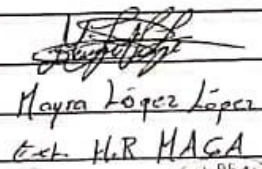 Mayra López López
H.R MAGA